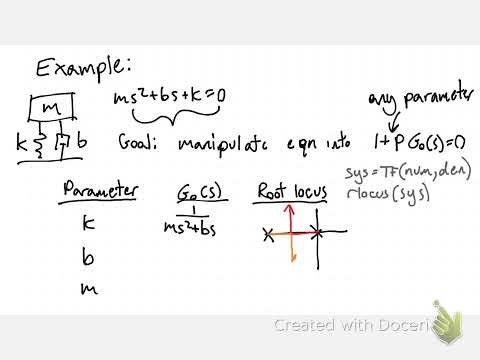 Example:
m
k
b
ms²+bs+k=0
any parameter
Goal: manipulate eqn into 1+PG₀(s)=0
sys=TF(num,den)
rlocus(sys)
Parameter G₀(s) Root locus
k 1/(ms²+bs)
b
m
Created with Doceri